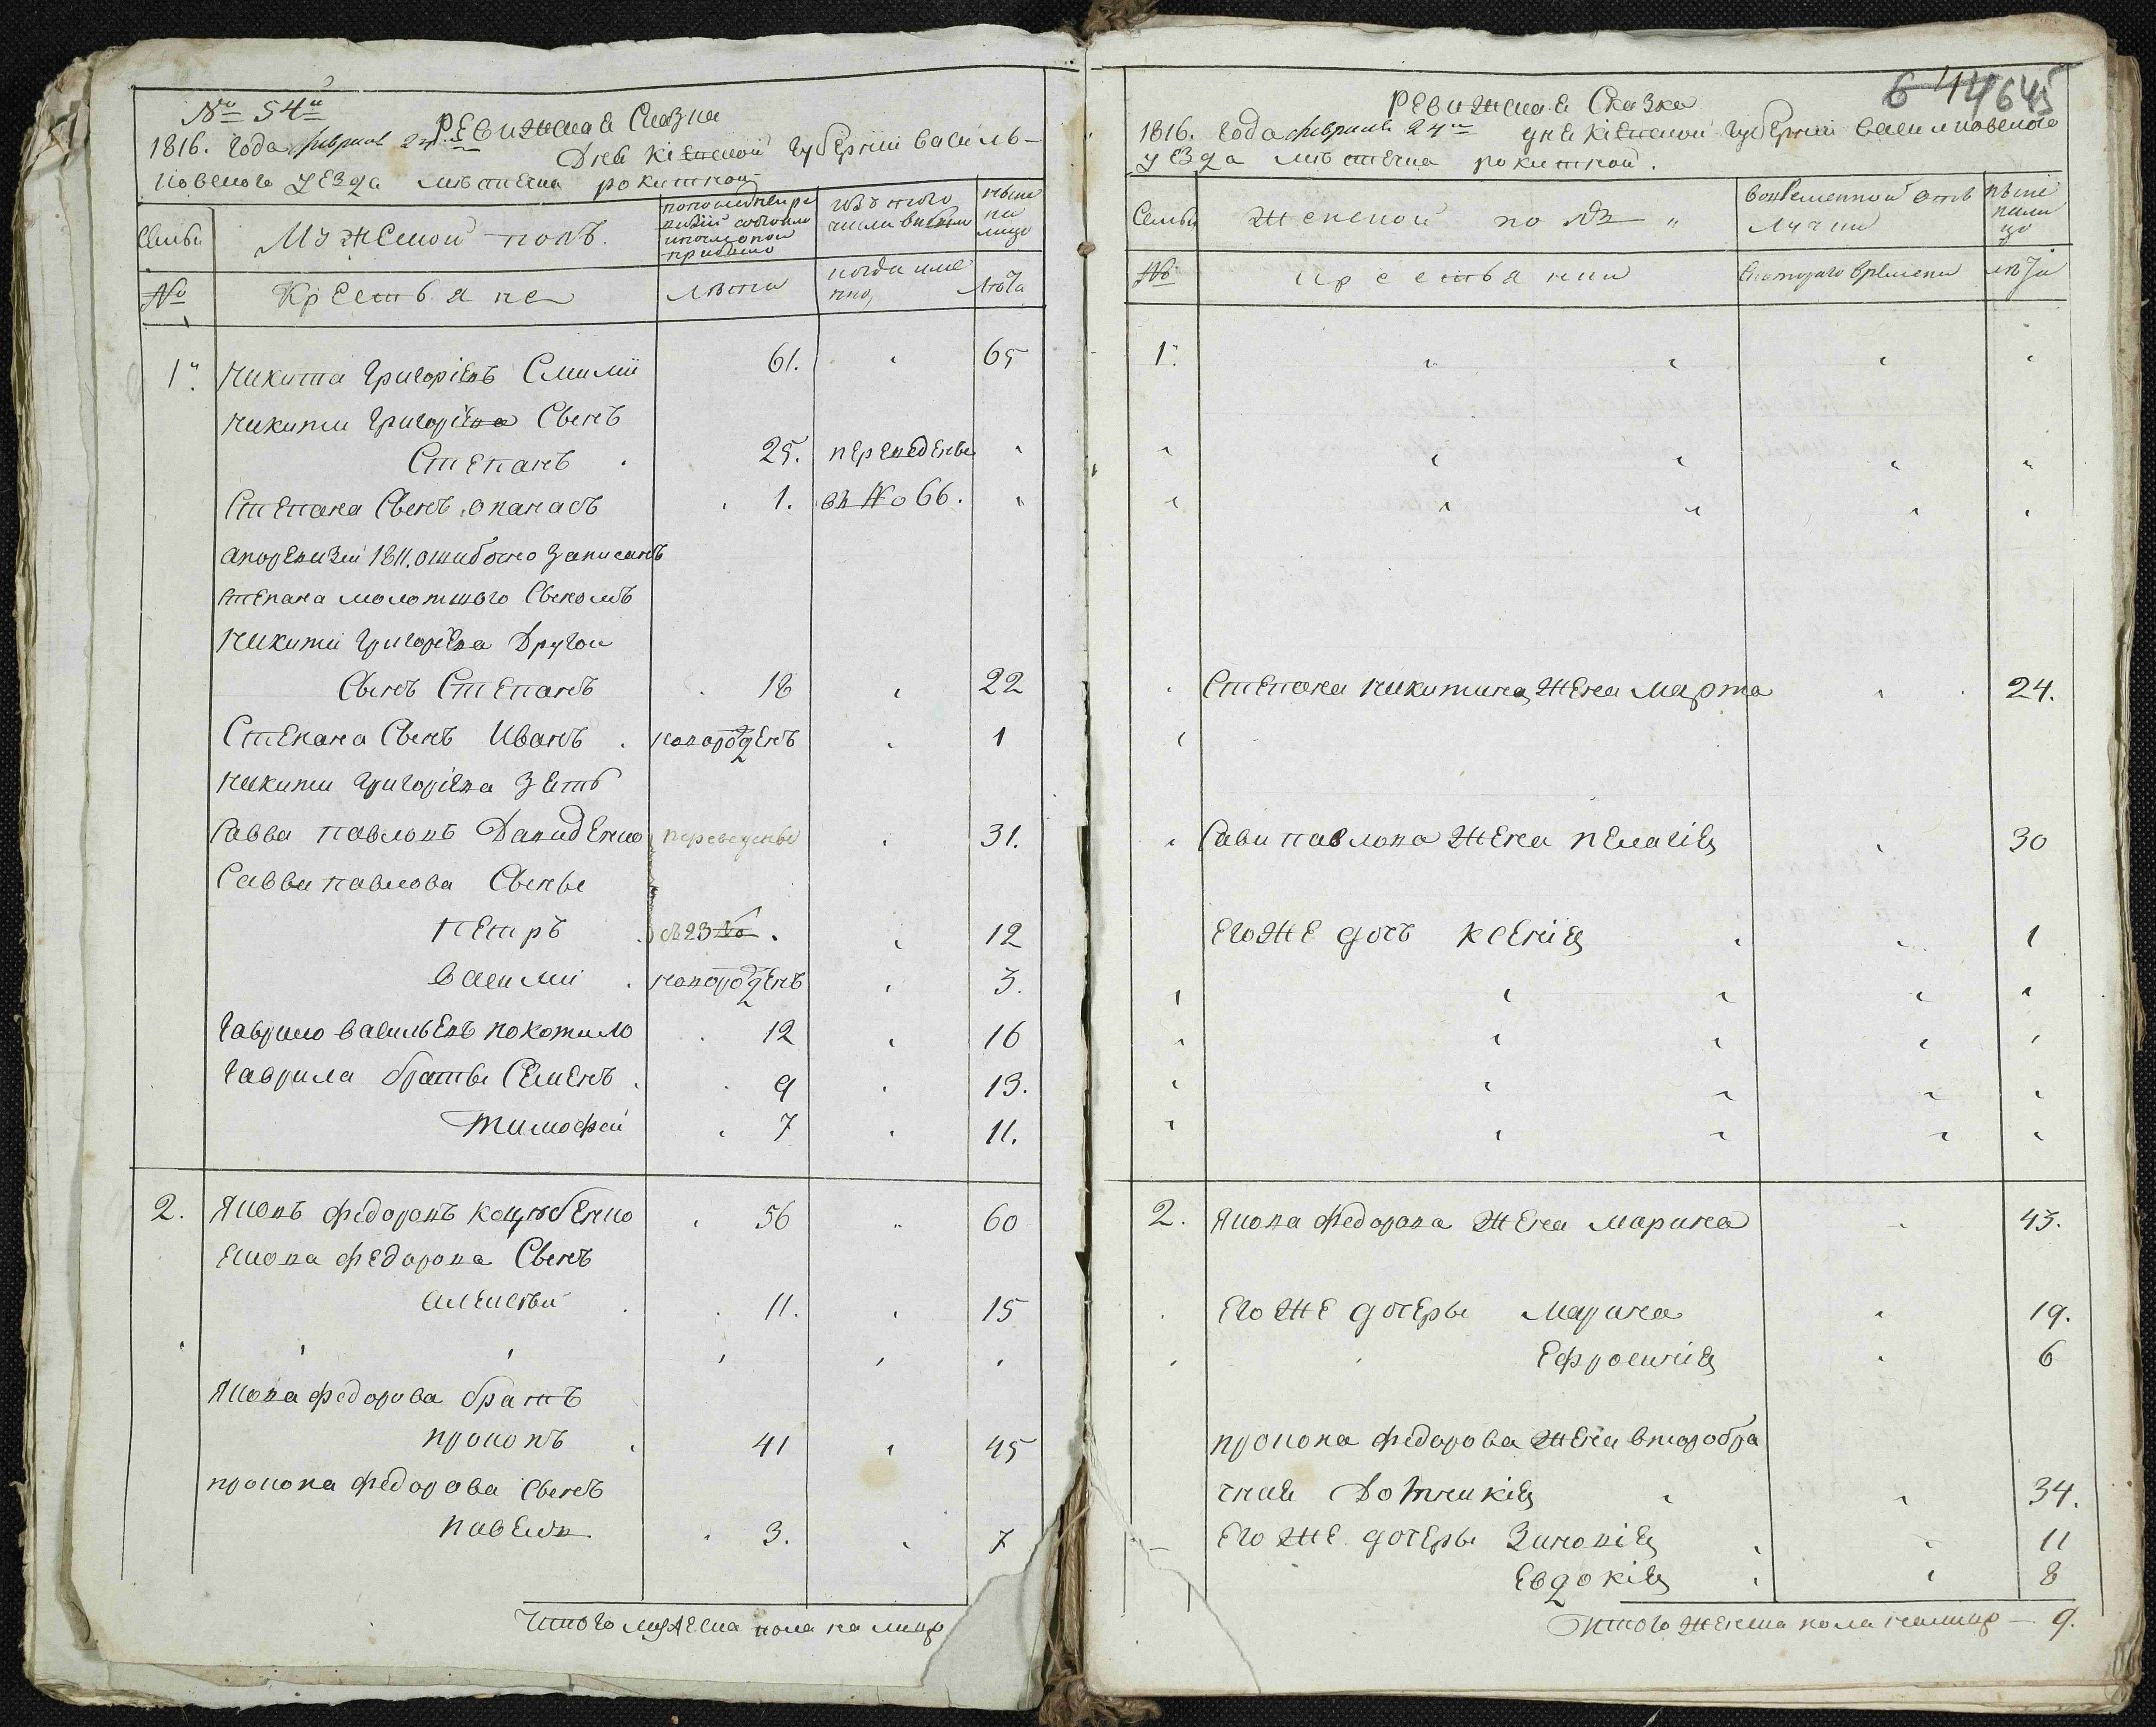 № 54й
Ревижская Сказка
1816. года февраля 24го Дня Кіевской губерніи Василь-
ковского уезда местечка рокитной
Семьи
Мужеской полъ.
по последней ре
визіи состояло
и после оной
прибыло
изъ того
числа выбыло
ныне
на
лицо
№
Крестьяне
лета
когда име
нно,
лета
1й. Никита Григоріевъ Смилій 61. 65
Никити Григоріева Сынъ
Степанъ 25. переведены
Степана Сынъ опанасъ 1. въ № 66.
а по ревизіи 1811. ошибочно записанъ
степана молотшого Сыномъ
Никити Григоріева Другои
Сынъ Степанъ 18 22
Степана Сынъ Иванъ новорожденъ 1
Никити Григоріева зеть
Савва павловъ Давиденко переведены 31.
Савви павлова Сыны
петръ съ 23 № 12
василій новорожденъ 3.
Гаврило васильевъ покотило 12 16
Гаврила братьи Семенъ 9 13.
тимофей 7 11.
2. Яковъ федоровъ коцюбенко 56 60
Якова федорова Сынъ
Алексей 11. 15
Якова федорова братъ
прокопъ 41 45
прокопа федорова Сынъ
павелъ 3. 7
Итого мужеска пола на лицо
644 645
Ревижская Сказка
1816. года февраля 24го дня Кіевской губерніи васильковского
уезда местечка рокитной.
Семьи
Женской полъ
во временной отъ
лучки
ныне
нали
цо
№
крестьянки
с которого времени
лета
1.
Степана Никитина жена марта 24.
Сави павлова жена пелагія 30
его же дочь ксенія 1
2. Якова федорова жена марина 43.
его же дочеры марина 19.
Ефросинія 6
прокопа федорова жена второбра
чная Домникія 34.
его же дочеры Зиновія 11
Евдокія 8
Итого женска пола налицо — 9.